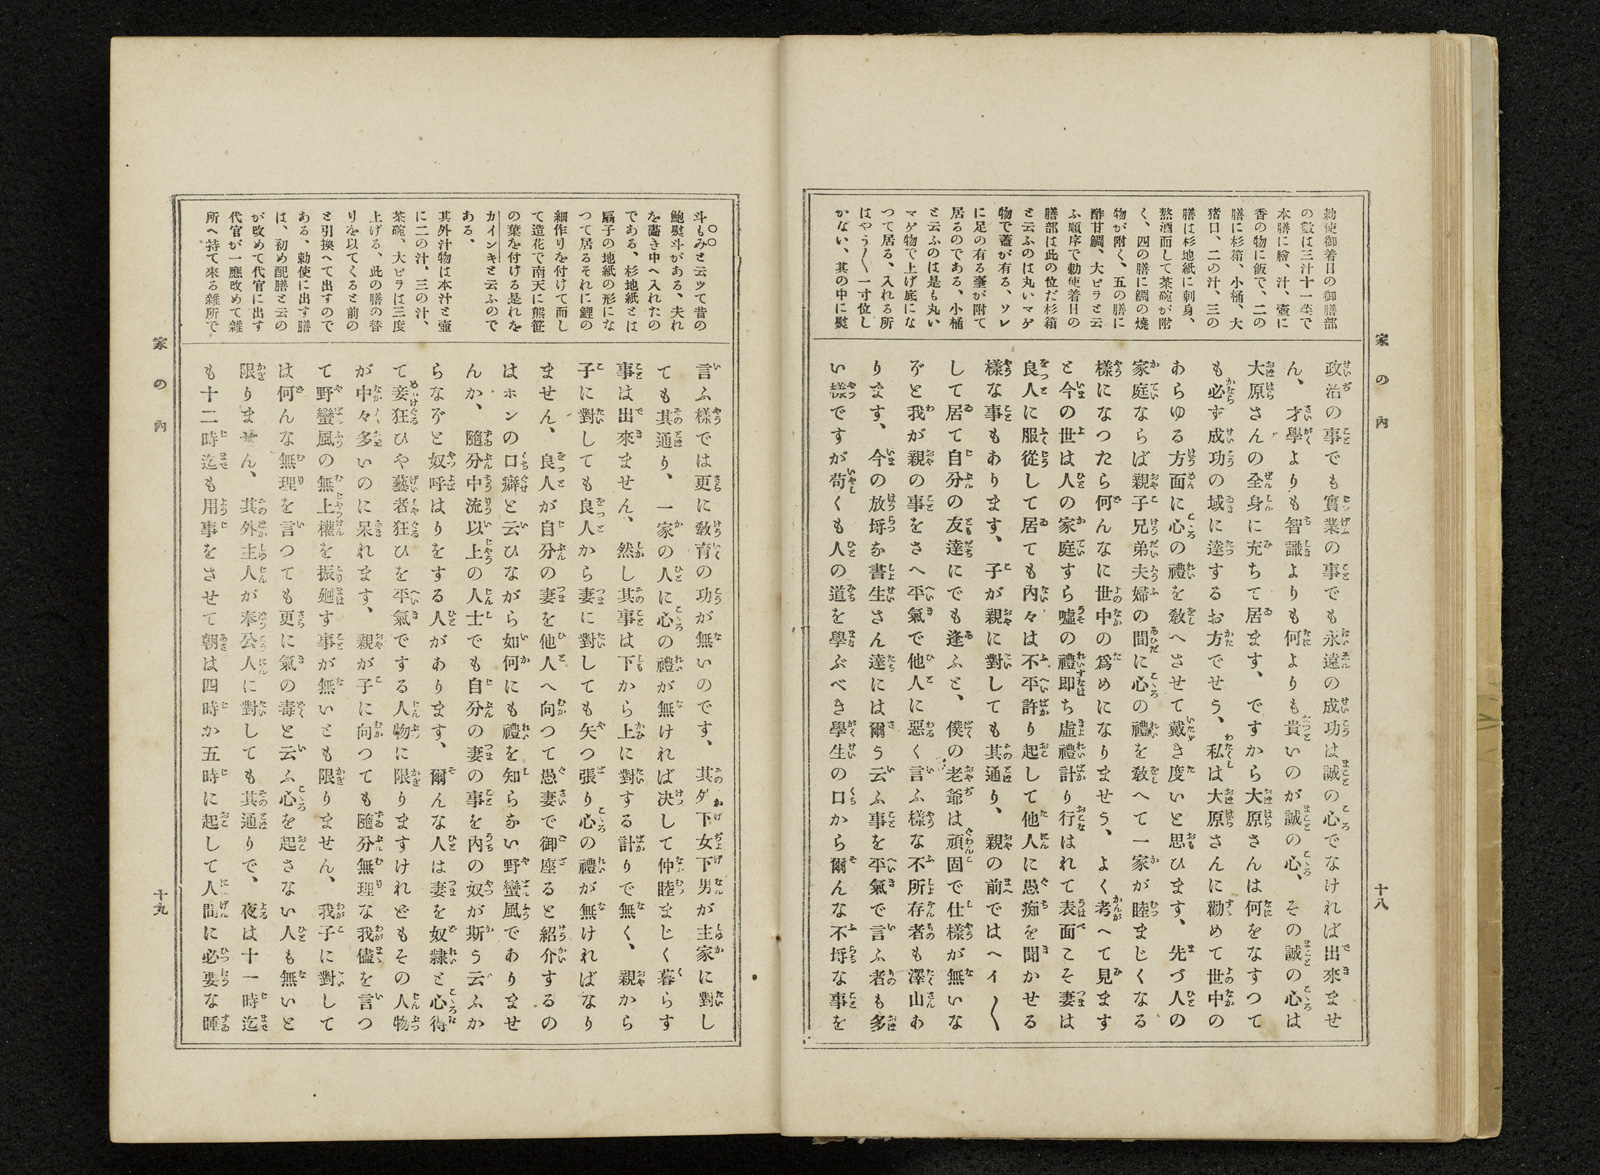 勅使御着日の御膳部
の數は三汁十一菜で
本膳に膾、汁、壺に
香の物に飯で、二の
膳に杉箱、小桶、大
猪口、二の汁、三の
膳は杉地紙に刺身、
熬酒而して茶碗が附
く、四の膳に鯛の燒
物が附く、五の膳に
酢甘鯛、大ピラと云
ふ順序で勅使着日の
膳部は此の位だ杉箱
と云ふのは丸いマゲ
物で蓋が有る、ソレ
に足の有る臺が附て
居るのである、小桶
と云ふのは是も丸い
マゲ物で上げ底にな
つて居る、入れる所
はやう〳〵一寸位し
かない、其の中に熨
家の內
十八
政治の事でも實業の事でも永遠の成功は誠の心でなければ出來ませ
ん、才學よりも智識よりも何よりも貴いのが誠の心、その誠の心は
大原さんの全身に充ちて居ます、ですから大原さんは何をなすつて
も必ず成功の域に達するお方でせう、私は大原さんに勸めて世中の
あらゆる方面に心の禮を敎へさせて戴き度いと思ひます、先づ人の
家庭ならば親子兄弟夫婦の間に心の禮を敎へて一家が睦まじくなる
樣になつたら何んなに世中の爲めになりませう、よく考へて見ます
と今の世は人の家庭すら噓の禮即ち虛禮計り行はれて表面こそ妻は
良人に服從して居ても內々は不平許り起して他人に愚痴を聞かせる
樣な事もあります、子が親に對しても其通り、親の前ではヘイ〳〵
して居て自分の友達にでも逢ふと、僕の老爺は頑固で仕樣が無いな
どと我が親の事をさへ平氣で他人に惡く言ふ樣な不所存者も澤山あ
ります、今の放埒な書生さん達には爾う云ふ事を平氣で言ふ者も多
い樣ですが苟くも人の道を學ぶべき學生の口から爾んな不埒な事を
斗もみと云ッて昔の
鮑熨斗がある、夫れ
を薔き中へ入れたの
である、杉地紙とは
扇子の地紙の形にな
つて居るそれに鯉の
細作りを付けて而し
て造花で南天に熊笹
の葉を付ける是れを
カインキと云ふので
ある、
其外汁物は本汁と壺
に二の汁、三の汁、
茶碗、大ピラは三度
上げる、此の膳の替
りを以てくると前の
と引換へて出すので
ある、勅使に出す膳
は、初め配膳と云の
が改めて代官に出す
代官が一應改めて雜
所へ持て來る雜所で
家の內
十九
言ふ樣では更に敎育の功が無いのです、其外下女下男が主家に對し
ても其通り、一家の人に心の禮が無ければ决して仲睦まじく暮らす
事は出來ません、然し其事は下から上に對する計りで無く、親から
子に對しても良人から妻に對しても矢つ張り心の禮が無ければなり
ません、良人が自分の妻を他人へ向つて愚妻で御座ると紹介するの
はホンの口癖と云ひながら如何にも禮を知らない野蠻風でありませ
んか、隨分中流以上の人士でも自分の妻の事を內の奴が斯う云ふか
らなどと奴呼はりをする人があります、爾んな人は妻を奴隷と心得
て妾狂ひや藝者狂ひを平氣でする人物に限りますけれどもその人物
が中々多いのに呆れます、親が子に向つても隨分無理な我儘を言つ
て野蠻風の無上權を振廻す事が無いとも限りません、我子に對して
は何んな無理を言つても更に氣の毒と云ふ心を起さない人も無いと
限りません、其外主人が奉公人に對しても其通りで、夜は十一時迄
も十二時迄も用事をさせて朝は四時か五時に起して人間に必要な睡